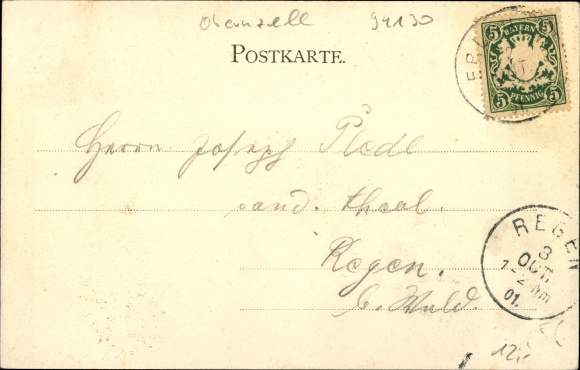 Obernzell 94130
POSTKARTE.
5 BAYERN 5
5 PFENNIG 5
Herrn Joseph
cand. theol.
Regen.
b. Wald.
REGEN
3
OCT.
1-2 Nm
01.